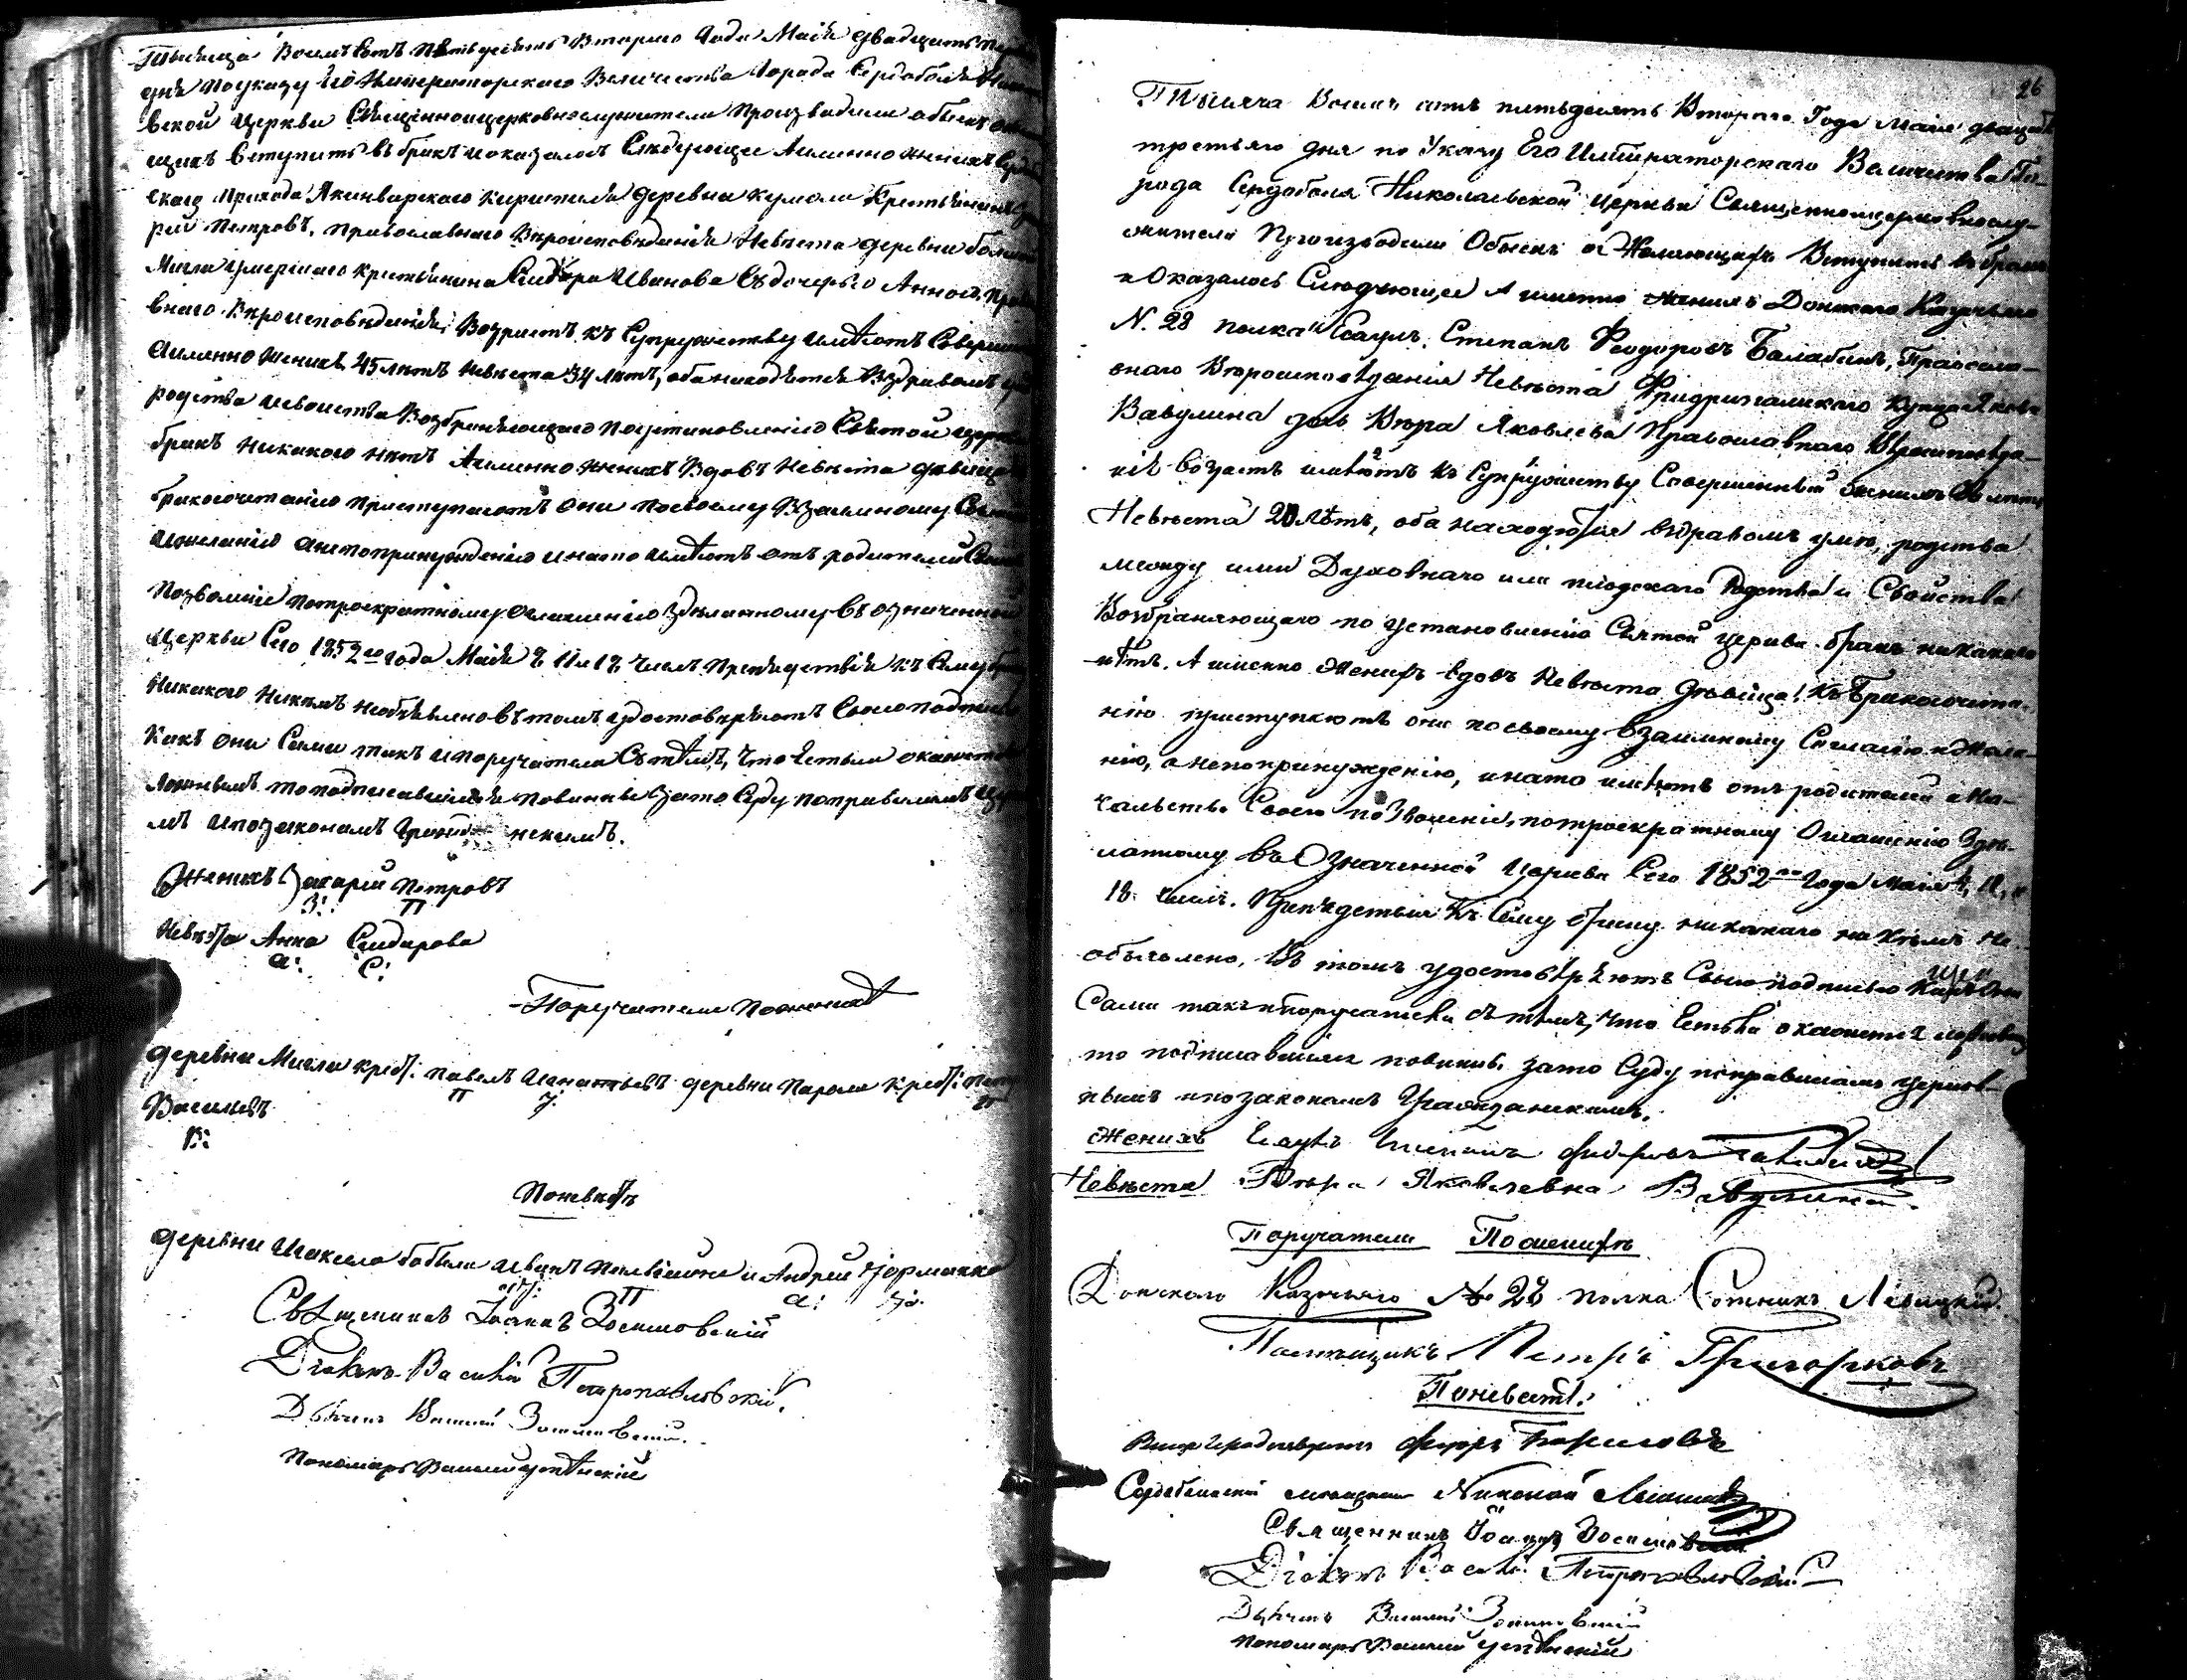 Тысяща Восемъ Сотъ Пятьдесятъ Втораго Года Маія двадцать
дня По указу Его Императорскаго Величества Города Сердоболя
вской Церкви Священноцерковнослужители Производили обыскъ о
щихъ Вступить въ бракъ и оказалось Слѣдующее А именно женихъ
скаго Прихода Якимварскаго Кирхшпиля деревни Крестьянинъ
рій Петровъ, Православнаго Вѣроисповѣданія Невѣста деревни
Мигла умершаго крестьянина Сидора Иванова съ дочерью Анною,
внаго Вѣроисповѣданія, Возрастъ къ Супружеству имѣютъ Соверше
А именно Женихъ 45 лѣтъ Невѣста 34 лѣтъ, оба находятся Въздравомъ
родства и свойства Возбраняющаго По установленію Святой
бракъ Никакого нѣтъ А именно женихъ Вдовъ Невѣста дѣвица
бракосочетанію Приступаютъ Они По своему Взаимному
и желанію а не по принужденію и на то имѣютъ отъ родителей
Позволеніе По троекратному Оглашенію Здѣланному въ означенной
Церкви Сего 1852го года Маія 9 11 и 18 Числъ Препядствія къ Сему
Никакого Никѣмъ необъявлено въ томъ удостовѣряютъ Своею
Какъ они Сами такъ и поручатели Съ тѣмъ, Что Естьли окажется
ложнымъ то подписавшіися Повинны за то Суду по правиламъ
мъ и по законамъ нскимъ.
Женихъ Захарій Петровъ
З: П
Невѣста Анна Сидорова
А: С:
Поручатели По женихѣ
деревни Мигли крест: Павелъ Игнатьевъ деревни крест:
П
Васильевъ
В:
По невѣстѣ
деревни бобыли Иванъ и Андрей
П А:
Священникъ Іоаннъ Зосимовскій
Діаконъ Василій Петропавловскій.
Дьячекъ Василій Зотиковскій.
Пономарь Василій Успѣнскій
26
Тысяча Восемь сотъ пятьдесятъ Втораго Года Маія двадцать
третьяго дня по Указу Его Императорскаго Величества Го-
рода Сердоболя Николаевской церкви Священноцерковнослу-
жители Производили Обыскъ о Желающихъ Вступить въ бракъ
и Оказалось Слюдующее А именно женихъ Донскаго Казачьяго
N. 28 полка Есаулъ Степанъ Феодоровъ Балабинъ, Правосла-
внаго Вѣроисповѣданія Невѣста Фридрихгамскаго Купца Якова
Вавулина дочь Вѣра Яковлева Православнаго Вѣроисповѣда-
нія возрастъ имѣютъ къ Супружеству Совершенный женихъ лѣтъ
Невѣста 20 лѣтъ, оба находятся въ здравомъ умѣ, родства
между ими Духовнаго или плодскаго Родства и Свойства
Возбраняющаго по установленію Святой церкви бракъ никакаго
нѣтъ. А именно Женихъ вдовъ Невѣста дѣвица! Къ Бракосочета-
нію приступаютъ они по своему взаимному Согласію и Жела-
нію, а не по принужденію, и на то имѣютъ отъ родителей и На-
чальства Своего позволеніе, по троекратному Оглашенію Здѣ-
ланному въ Означенной Церкви Сего 1852го Года Маія 9, 11, и
18. Числъ. Препядствія Къ Сему браку никакаго никѣмъ не
объявлено, Въ томъ удостовѣряютъ Своею подписью Какъ Они
Сами такъ и поручатели съ тѣмъ, что Естьли окажется
то подписавшіися повинны за то Суду по правиламъ церков-
нымъ и по законамъ Гражданскимъ.
Женихъ Есаулъ Степанъ Федоровъ Балабинъ
Невѣста Вѣра Яковлевна Вавулина.
Поручатели По женихѣ
Донскаго Казачьяго № 28 полка Сотникъ
Петръ Григорковъ
По невѣстѣ:
Сердобольскій Николай
Священникъ Іоаннъ Зосимовскій
Діаконъ Василій Петропавловскій
Дьячекъ Василій Зотиковскій
Пономарь Василій Успѣнскій